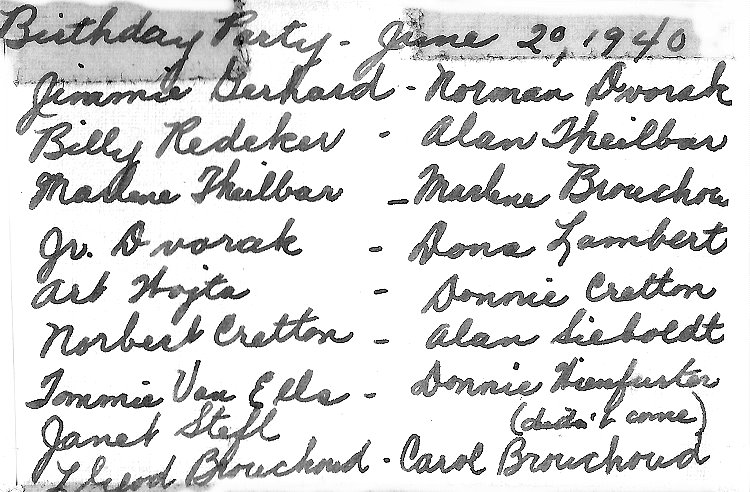 Birthday Party - June 20, 1940
Jimmie Gerhard - Norman Dvorak
Billy Redeker - Alan Theilbar
Marlene Theilbar - Marlene Brouchou
Jr. Dvorak - Dona Lambert
Art Wojta - Donnie Cretton
Norbert Cretton - Alan Sieboldt
Tommie Van Ells - Donnie Hienfurter
Janet Stefl (didn't come)
Brouchoud - Carol Brouchoud